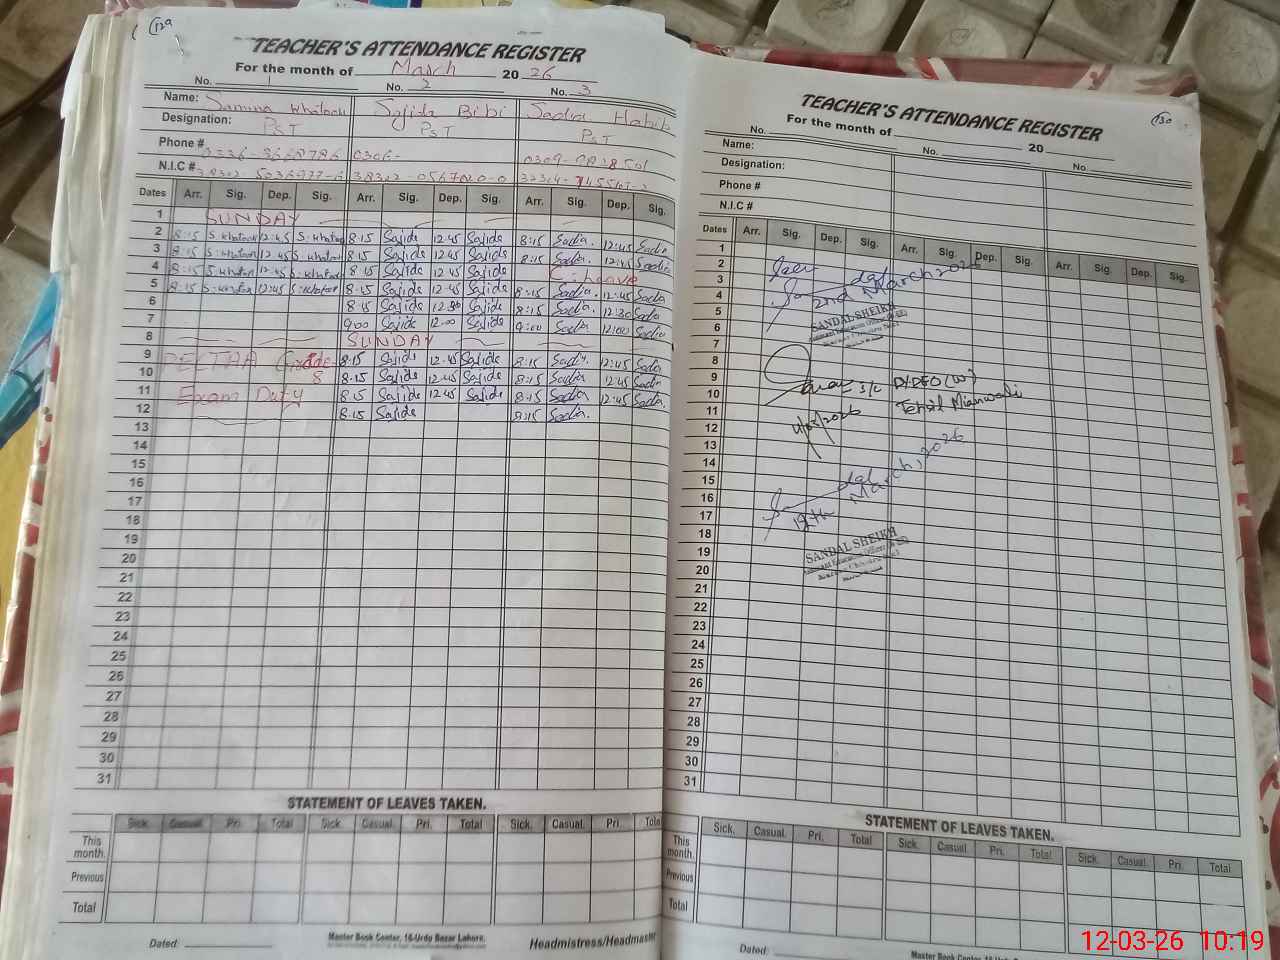 129
TEACHER'S ATTENDANCE REGISTER
For the month of March 20 26
No. 1 No. 2 No. 3
Name: Samina Khatoon Sajida Bibi Sadia Habib
Designation: PST PST PST
Phone # 0306-
N.I.C #
Dates Arr. Sig. Dep. Sig. Arr. Sig. Dep. Sig. Arr. Sig. Dep. Sig.
1 SUNDAY
2 8:15 S.khatoon 12:45 S.khatoon 8.15 Sajida 12.45 Sajida 8:15 Sadia. 12:45 Sadia
3 8:15 S.khatoon 12:45 S.khatoon 8.15 Sajida 12.45 Sajida 8:15 Sadia. 12:45 Sadia
4 8:15 S.khatoon 12:45 S.khatoon 8.15 Sajida 12.45 Sajida C-leave
5 8:15 S.khatoon 12:45 S.khatoon 8.15 Sajida 12.45 Sajida 8:15 Sadia. 12:45 Sadia
6 8.15 Sajida 12.30 Sajida 8:15 Sadia. 12:30 Sadia
7 9.00 Sajida 12.00 Sajida 9:00 Sadia 12:00 Sadia
8 SUNDAY
9 Grade 8.15 Sajida 12.45 Sajida 8:15 Sadia. 12:45 Sadia
10 8 8.15 Sajida 12.45 Sajida 8:15 Sadia 12.45 Sadia
11 Exam Duty 8.15 Sajida 12.45 Sajida 8:15 Sadia 12:45 Sadia.
12 8.15 Sajida 8:15 Sadia.
13
14
15
16
17
18
19
20
21
22
23
24
25
26
27
28
29
30
31
STATEMENT OF LEAVES TAKEN.
Sick. Casual. Pri. Total Sick. Casual. Pri. Total Sick. Casual. Pri. Total
This month.
Previous
Total
Dated:
Master Book Center, 16-Urdu Bazar Lahore.
Headmistress/Headmaster
130
TEACHER'S ATTENDANCE REGISTER
For the month of 20
No. No. No.
Name:
Designation:
Phone #
N.I.C #
Dates Arr. Sig. Dep. Sig. Arr. Sig. Dep. Sig. Arr. Sig. Dep. Sig.
1
2
3 2nd March, 2026
4
5 SANDAL SHEIKH
6
7
8
9 D/DEO (W)
10 Tehsil Mianwali
11 11/03/2026
12
13
14
15
16 12th March, 2026
17
18 SANDAL SHEIKH
19
20
21
22
23
24
25
26
27
28
29
30
31
STATEMENT OF LEAVES TAKEN.
Sick. Casual. Pri. Total Sick. Casual. Pri. Total Sick. Casual. Pri. Total
This month.
Previous
Total
Dated:
Master Book Center, 16-Urdu Bazar
12-03-26 10:19